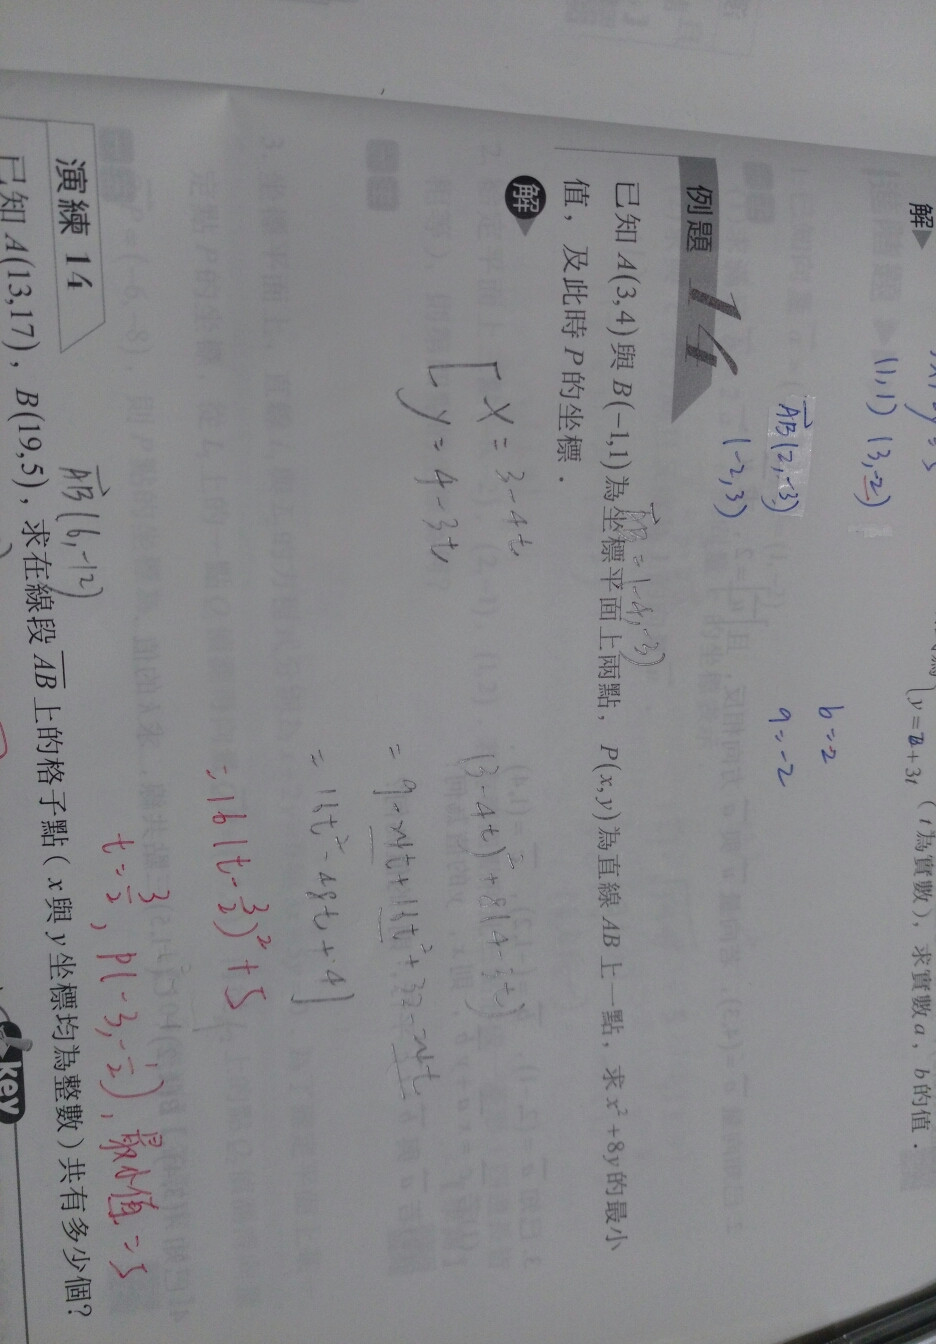 解
(1,1) (3,-2)
y=2+3t (t為實數)，求實數a、b的值．
b=-2
a=-2
AB(2,-3)
(-2,3)
例題 14
已知A(3,4)與B(-1,1)為坐標平面上兩點，P(x,y)為直線AB上一點，求x²+8y的最小
值，及此時P的坐標．
AB=(-4,-3)
解
x=3-4t
y=4-3t
(3-4t)²+8(4-3t)
=9-24t+16t²+32-24t
=16t²-48t+41
=16(t-3/2)²+5
t=3/2，P(-3,-1/2)，最小值=5
演練 14
AB(6,-12)
已知A(13,17)，B(19,5)，求在線段AB上的格子點(x與y坐標均為整數)共有多少個？
key